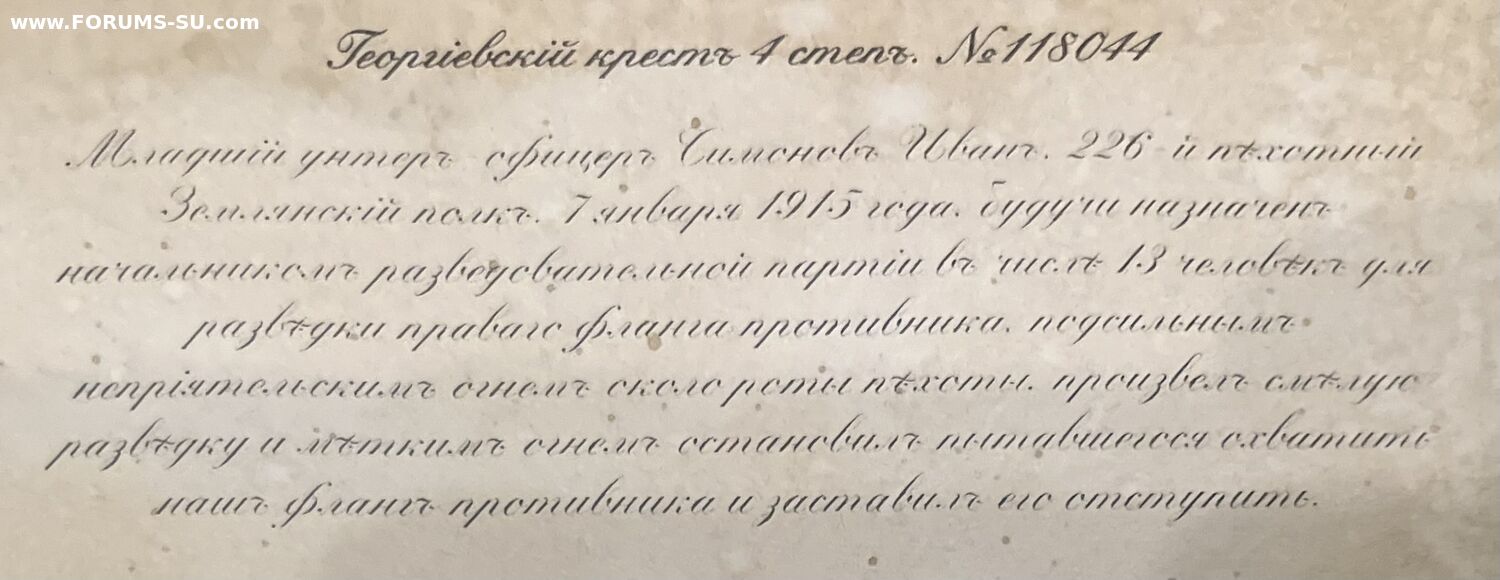 www.FORUMS-SU.com
Георгіевскій крестъ 4 степъ. №118044
Младшій унтеръ-офицеръ Симоновъ Иванъ. 226-й пѣхотный
Землянскій полкъ. 7 января 1915 года. будучи назначенъ
начальникомъ разведовательной партіи въ числѣ 13 человѣкъ для
развѣдки праваго фланга противника. подсильнымъ
непріятельскимъ огнемъ около роты пѣхоты. произвелъ смѣлую
развѣдку и мѣткимъ огнемъ остановилъ пытавшегося охватить
нашъ флангъ противника и заставилъ его отступить.